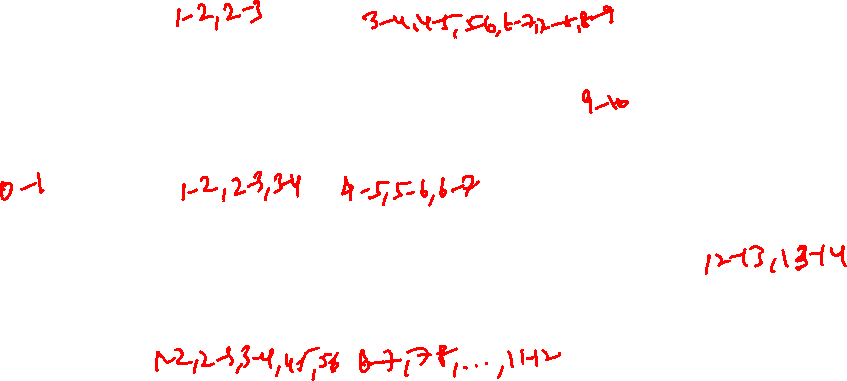 1-2, 2-3 3-4, 4-5, 5-6, 6-7, 7-8, 8-9
9-10
0-1 1-2, 2-3, 3-4 4-5, 5-6, 6-7
12-13, 13-14
1-2, 2-3, 3-4, 4-5, 56 6-7, 7-8, ..., 11-12